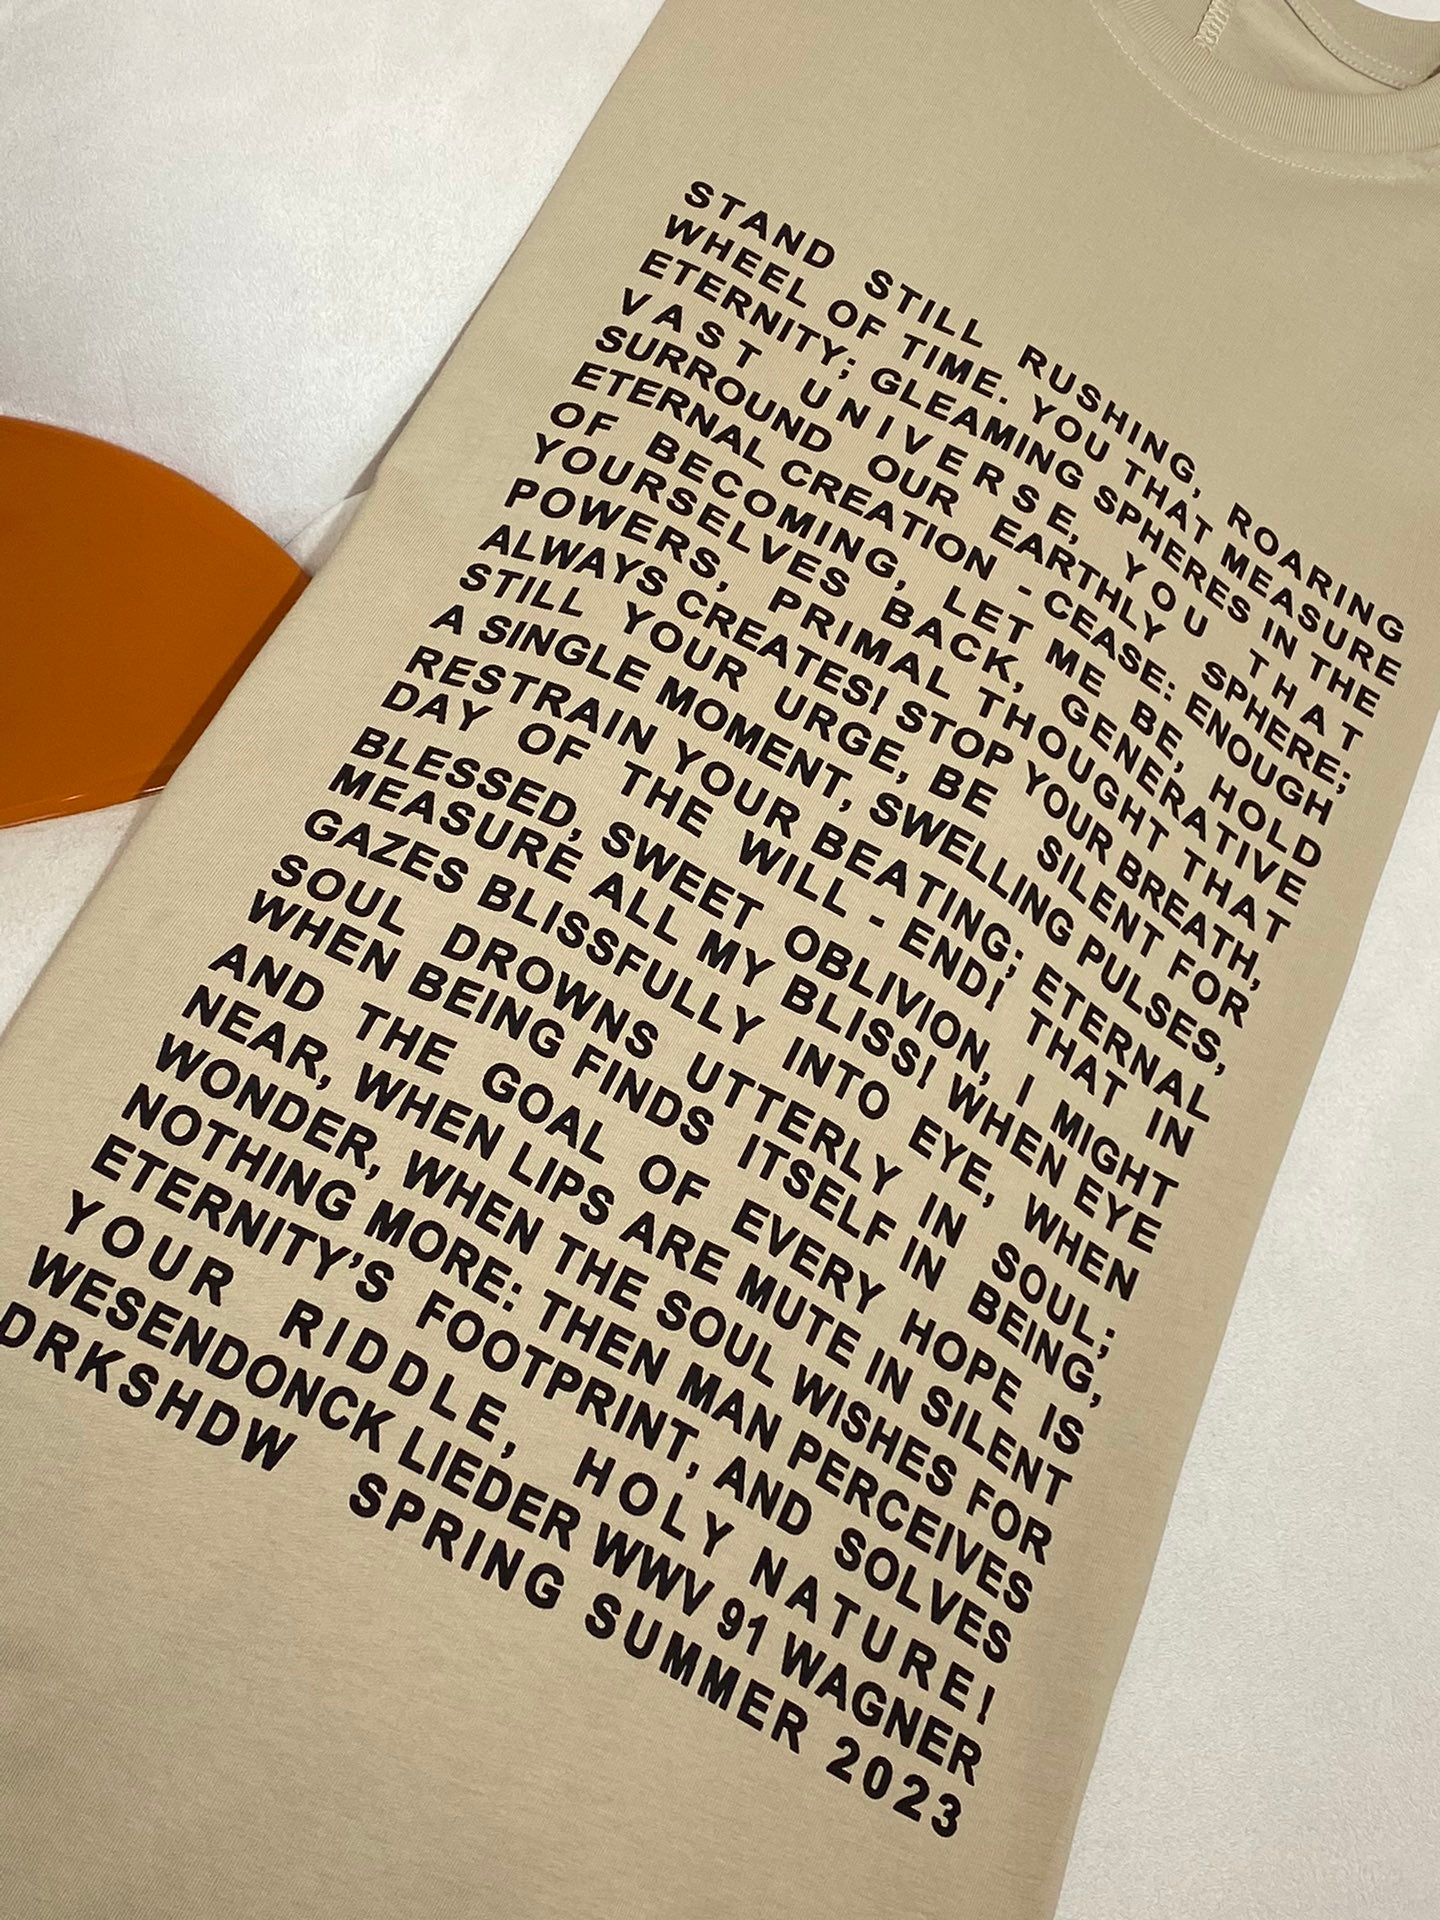 STAND STILL RUSHING, ROARING
WHEEL OF TIME. YOU THAT MEASURE
ETERNITY; GLEAMING SPHERES IN THE
VAST UNIVERSE, YOU THAT
SURROUND OUR EARTHLY SPHERE;
ETERNAL CREATION - CEASE: ENOUGH
OF BECOMING, LET ME BE, HOLD
YOURSELVES BACK, GENERATIVE
POWERS, PRIMAL THOUGHT THAT
ALWAYS CREATES! STOP YOUR BREATH,
STILL YOUR URGE, BE SILENT FOR
A SINGLE MOMENT, SWELLING PULSES,
RESTRAIN YOUR BEATING; ETERNAL
DAY OF THE WILL - END! THAT IN
BLESSED, SWEET OBLIVION, I MIGHT
MEASURE ALL MY BLISS! WHEN EYE
GAZES BLISSFULLY INTO EYE, WHEN
SOUL DROWNS UTTERLY IN SOUL;
WHEN BEING FINDS ITSELF IN BEING,
AND THE GOAL OF EVERY HOPE IS
NEAR, WHEN LIPS ARE MUTE IN SILENT
WONDER, WHEN THE SOUL WISHES FOR
NOTHING MORE: THEN MAN PERCEIVES
ETERNITY'S FOOTPRINT, AND SOLVES
YOUR RIDDLE, HOLY NATURE!
WESENDONCK LIEDER WWV 91 WAGNER
DRKSHDW SPRING SUMMER 2023